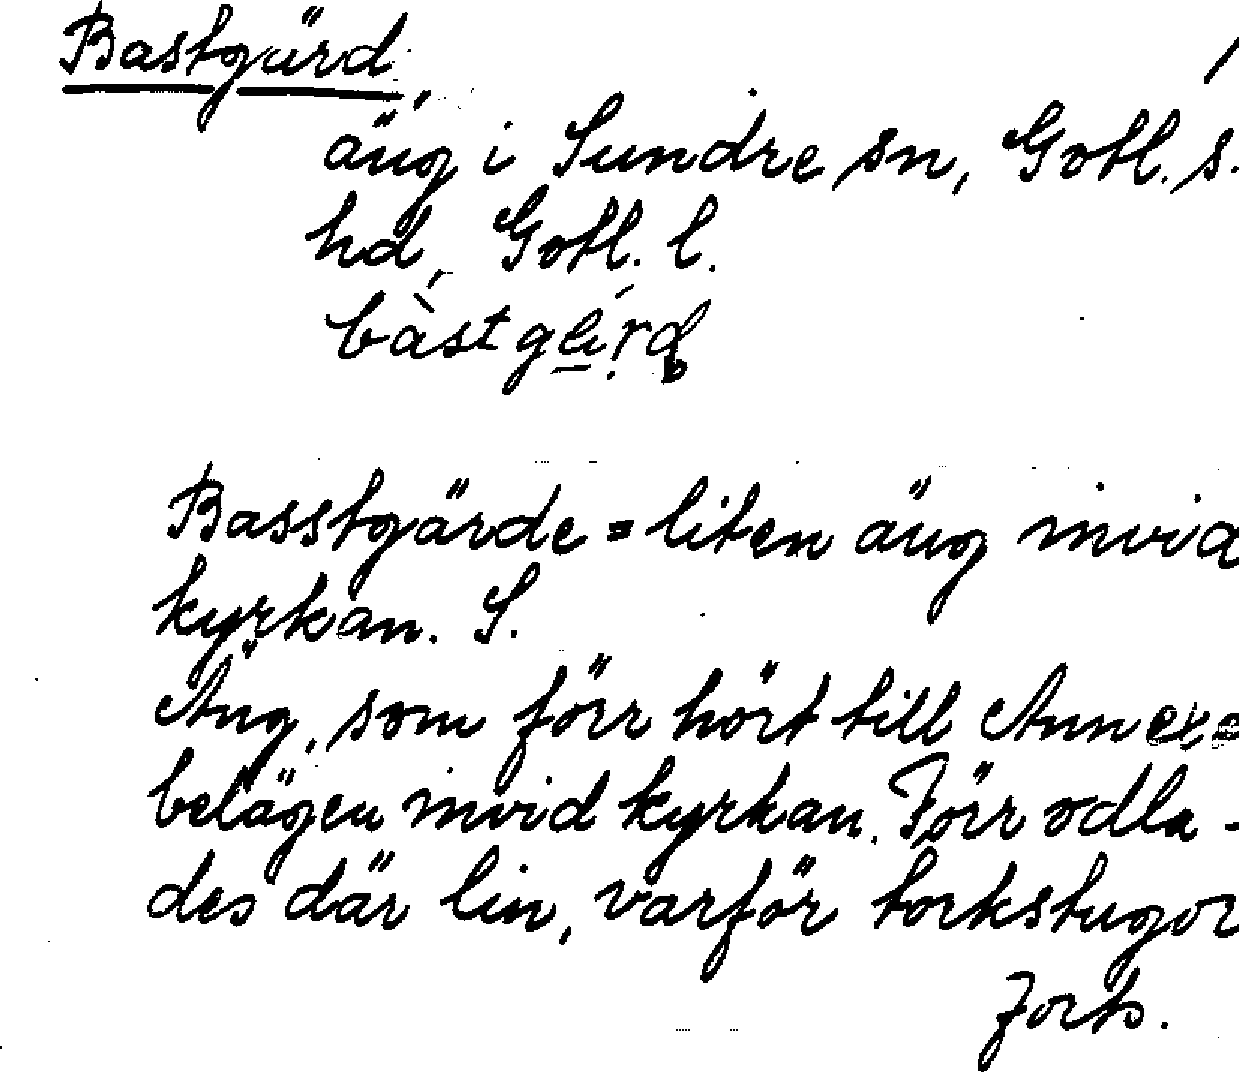 Bastgärd,
äng i Sundre sn, Gotl. s.
hd, Gotl. l.
Basstgärde = liten äng invid
kyrkan. S.
Äng, som förr hört till Annexe
belägen invid kyrkan. Förr odla-
des där lin, varför torkstugor
Forts.